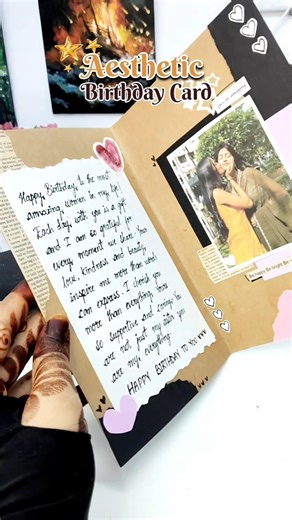 Aesthetic
Birthday Card
Happy Birthday to the most
amazing women in my life!
Each day with you is a gift
and I am so grateful for
every moment we share. Your
love, kindness and beauty
inspire me more than words
can express. I cherish you
more than everything. You're
so supportive and loving. You
are not just my sister you
are my everything!
HAPPY BIRTHDAY TO YOU ♥♥♥